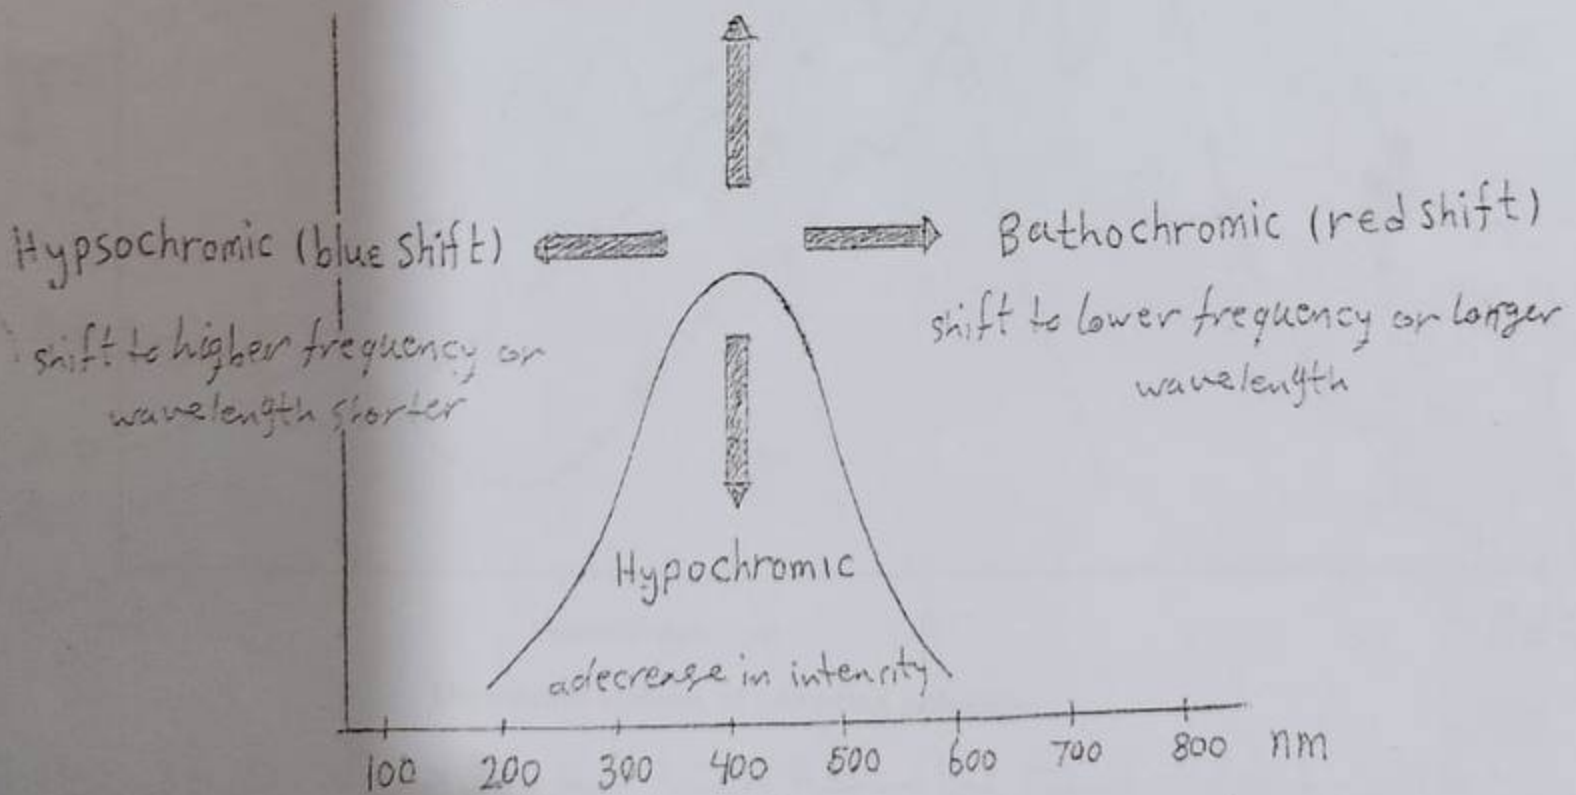 Hypsochromic (blue shift)
shift to higher frequency or
wavelength shorter
Bathochromic (red shift)
shift to lower frequency or longer
wavelength
Hypochromic
a decrease in intensity
100 200 300 400 500 600 700 800 nm